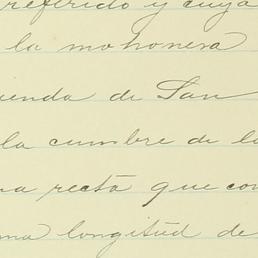 referido y cuya
la mohonera
ienda de San
la cumbre de la
na recta que con
ma longitud de